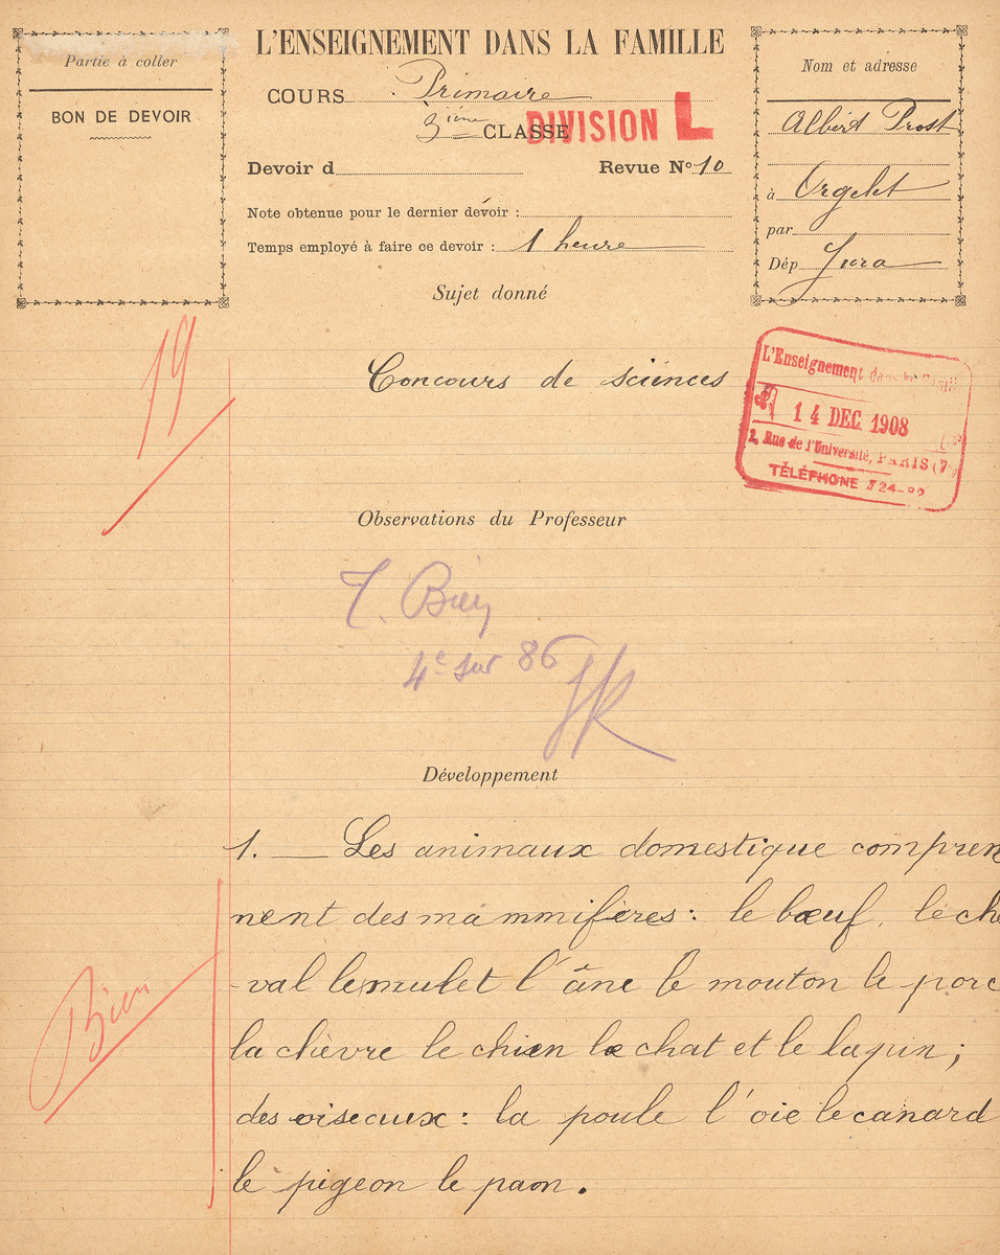 L'ENSEIGNEMENT DANS LA FAMILLE
Partie à coller
BON DE DEVOIR
COURS Primaire
3ième CLASSE
DIVISION L
Devoir d
Revue N° 10
Note obtenue pour le dernier devoir :
Temps employé à faire ce devoir : 1 heure
Nom et adresse
Albert Prost
à Orgelet
par
Dép Jura
Sujet donné
19
Concours de sciences
L'Enseignement dans la Famille
14 DEC. 1908
2, Rue de l'Université, PARIS (7
TÉLÉPHONE 724-
Observations du Professeur
T. Bien
4e sur 86
Développement
1. — Les animaux domestique compren
nent des mammifères : le bœuf, le che
val le mulet l'âne le mouton le porc
la chèvre le chien le chat et le lapin ;
des oiseaux : la poule l'oie le canard
le pigeon le paon.
Bien